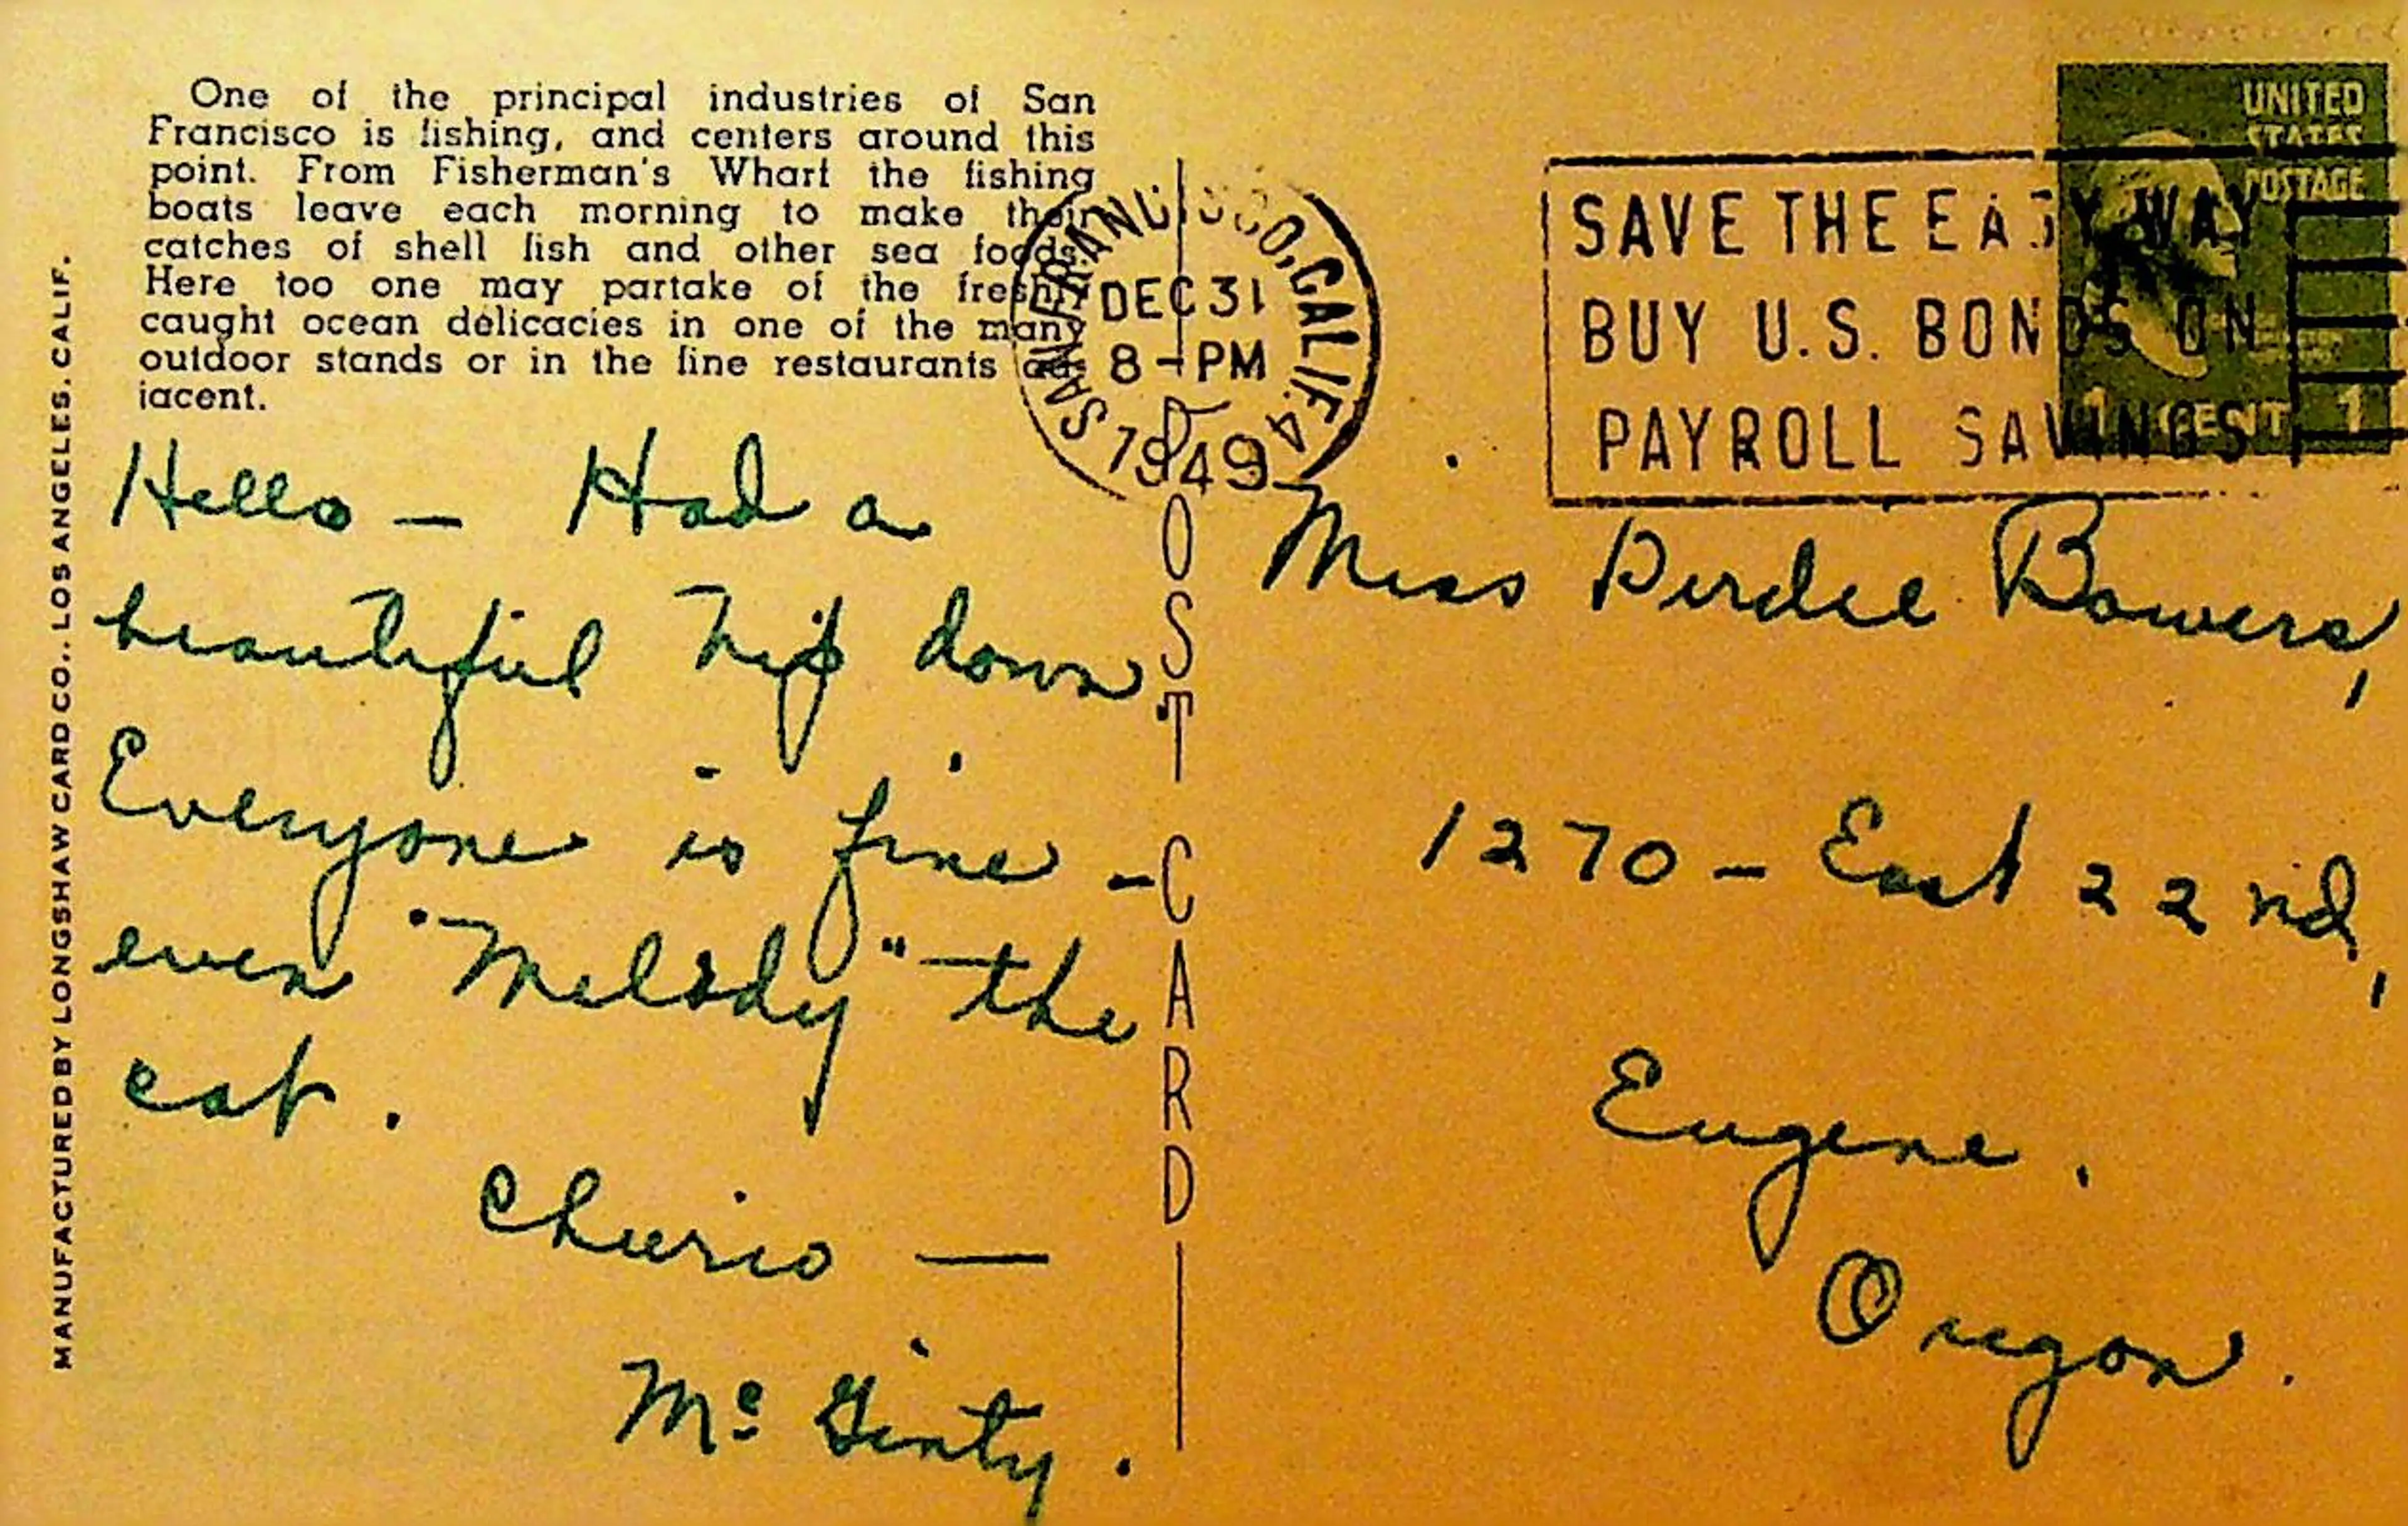 One of the principal industries of San
Francisco is fishing, and centers around this
point. From Fisherman's Wharf the fishing
boats leave each morning to make their
catches of shell fish and other sea foods.
Here too one may partake of the freshly
caught ocean delicacies in one of the many
outdoor stands or in the fine restaurants ad-
jacent.
MANUFACTURED BY LONGSHAW CARD CO., LOS ANGELES, CALIF.
Hello — Had a
beautiful trip down.
Everyone is fine -
even "Melody" the
cat.
Cheerio —
Mc Ginty.
POST CARD
SAN FRANCISCO, CALIF. 4
DEC 31
8 - PM
1949
SAVE THE EASY WAY
BUY U.S. BONDS ON
PAYROLL SAVINGS
UNITED
STATES
POSTAGE
1 CENT 1
Miss Birdie Bowers,
1270 - East 22nd,
Eugene,
Oregon.